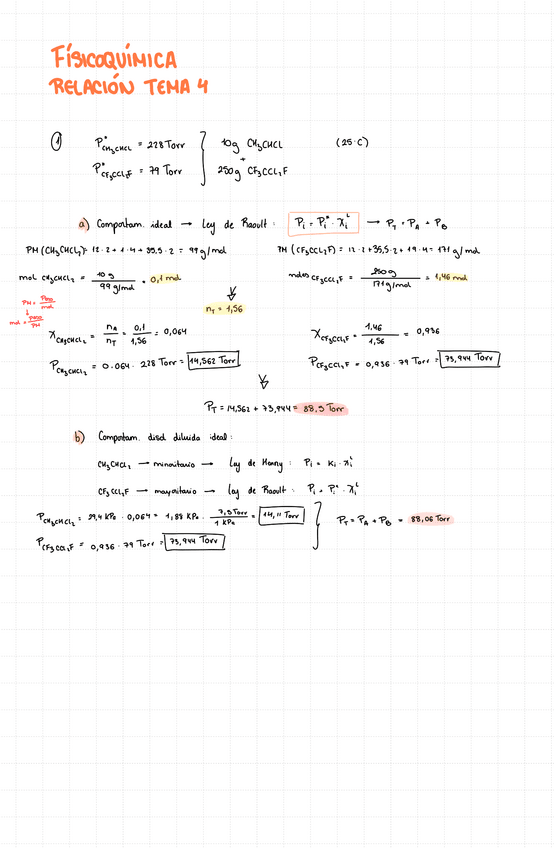 FÍSICOQUÍMICA
RELACIÓN TEMA 4
① P*CH3CHCl = 228 Torr } 10g CH3CHCl (25·C)
+
P*CF3CCl2F = 79 Torr 250g CF3CCl2F
a) Comportam. ideal → Ley de Raoult: Pi = Pi* · χiL → PT = PA + PB
PM (CH3CHCl2): 12·2 + 1·4 + 35,5·2 = 99 g/mol PM (CF3CCl2F) = 12·2 + 35,5·2 + 19·4 = 171 g/mol
mol CH3CHCl2 = 10 g / 99 g/mol = 0,1 mol moles CF3CCl2F = 250g / 171 g/mol = 1,46 mol
PM = peso/mol
↓
mol = peso/PM
nT = 1,56
χCH3CHCl2 = nA/nT = 0,1/1,56 = 0,064 χCF3CCl2F = 1,46/1,56 = 0,936
PCH3CHCl2 = 0.064 · 228 Torr = 14,562 Torr PCF3CCl2F = 0,936 · 79 Torr = 73,944 Torr
PT = 14,562 + 73,944 = 88,5 Torr
b) Comportam. disol diluida ideal:
CH3CHCl2 → minoritario → Ley de Henry : Pi = Ki · χiL
CF3CCl2F → mayoritario → Ley de Raoult : Pi = Pi* · χiL
PCH3CHCl2 = 29,4 KPa · 0,064 = 1,88 KPa · 7,5 Torr / 1 KPa = 14,11 Torr } PT = PA + PB = 88,06 Torr
PCF3CCl2F = 0,936 · 79 Torr = 73,944 Torr